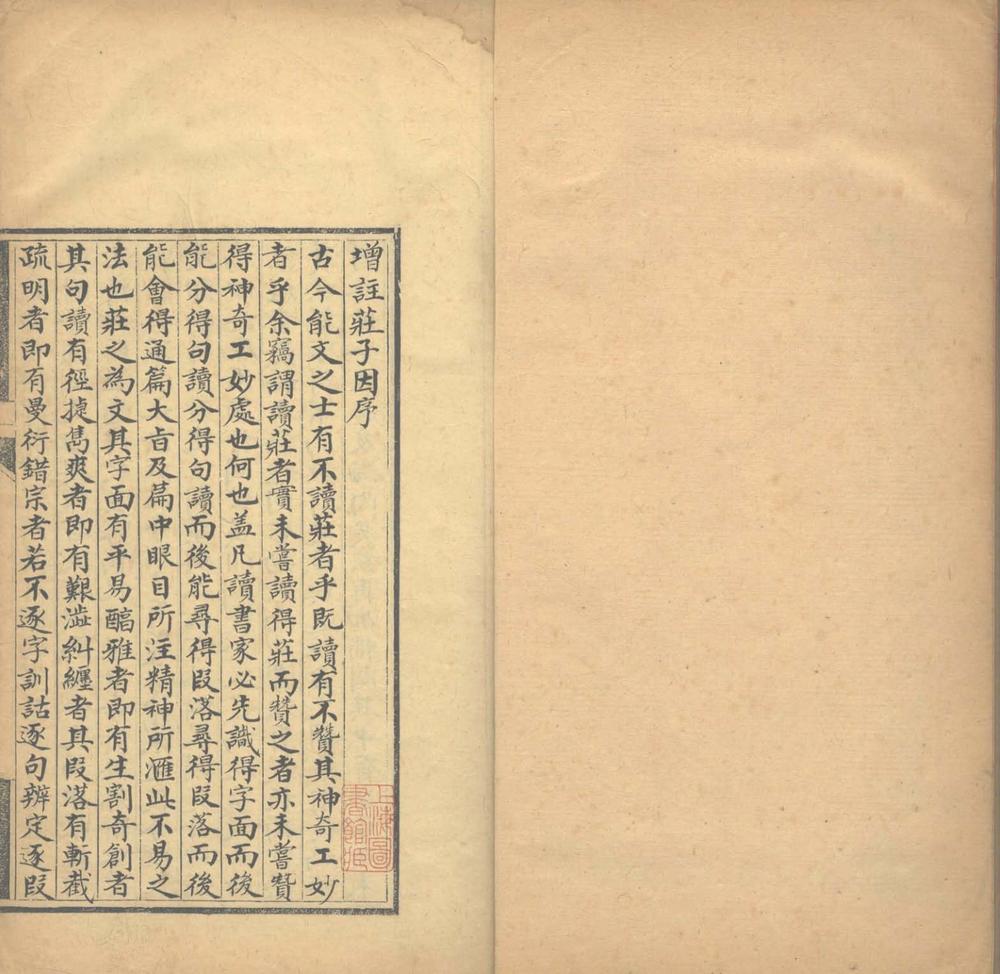 增註莊子因序
古今能文之士有不讀莊者乎既讀有不贊其神奇工妙
者乎余竊謂讀莊者實未嘗讀得莊而贊之者亦未嘗贊
得神奇工妙處也何也蓋凡讀書家必先識得字面而後
能分得句讀分得句讀而後能尋得段落尋得段落而後
能會得通篇大旨及篇中眼目所注精神所滙此不易之
法也莊之為文其字面有平易醕雅者即有生割奇創者
其句讀有徑捷雋爽者即有艱澁糾纏者其段落有斬截
疏明者即有曼衍錯宗者若不逐字訓詁逐句辨定逐段
上海圖
書館藏